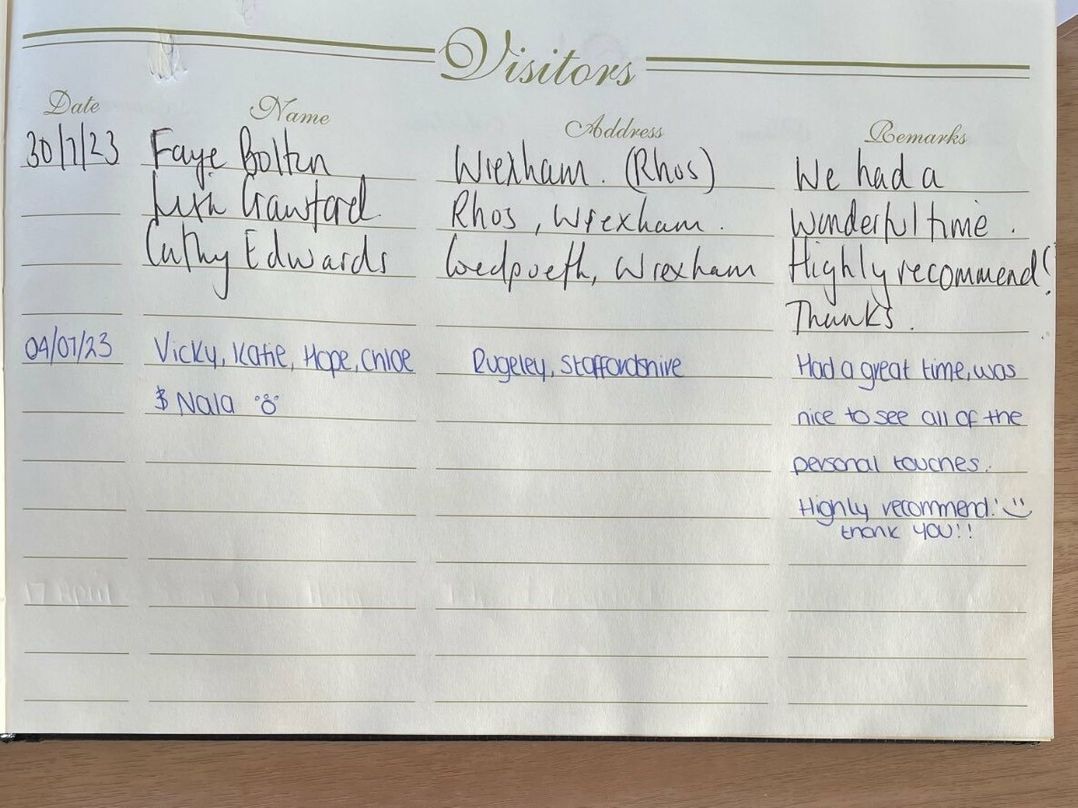 Visitors
Date Name Address Remarks
30/7/23 Faye Bolton Wrexham. (Rhos) We had a
Crawford. Rhos, Wrexham. wonderful time.
Cathy Edwards Coedpoeth, Wrexham Highly recommend!
Thanks.
04/07/23 Vicky, Katie, Hope, Chloe Rugeley, Staffordshire Had a great time, was
& Nala nice to see all of the
personal touches.
Highly recommend!
thank you!!